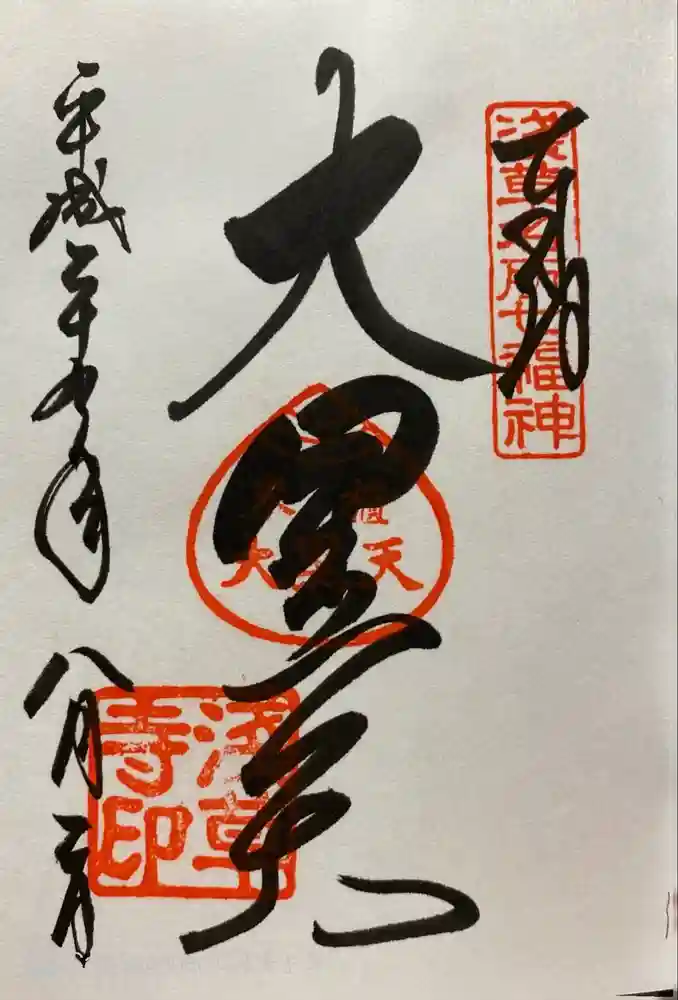 奉拝
浅草名所七福神
大黒天
大 天
浅草寺印
平成二十九年
八月一日